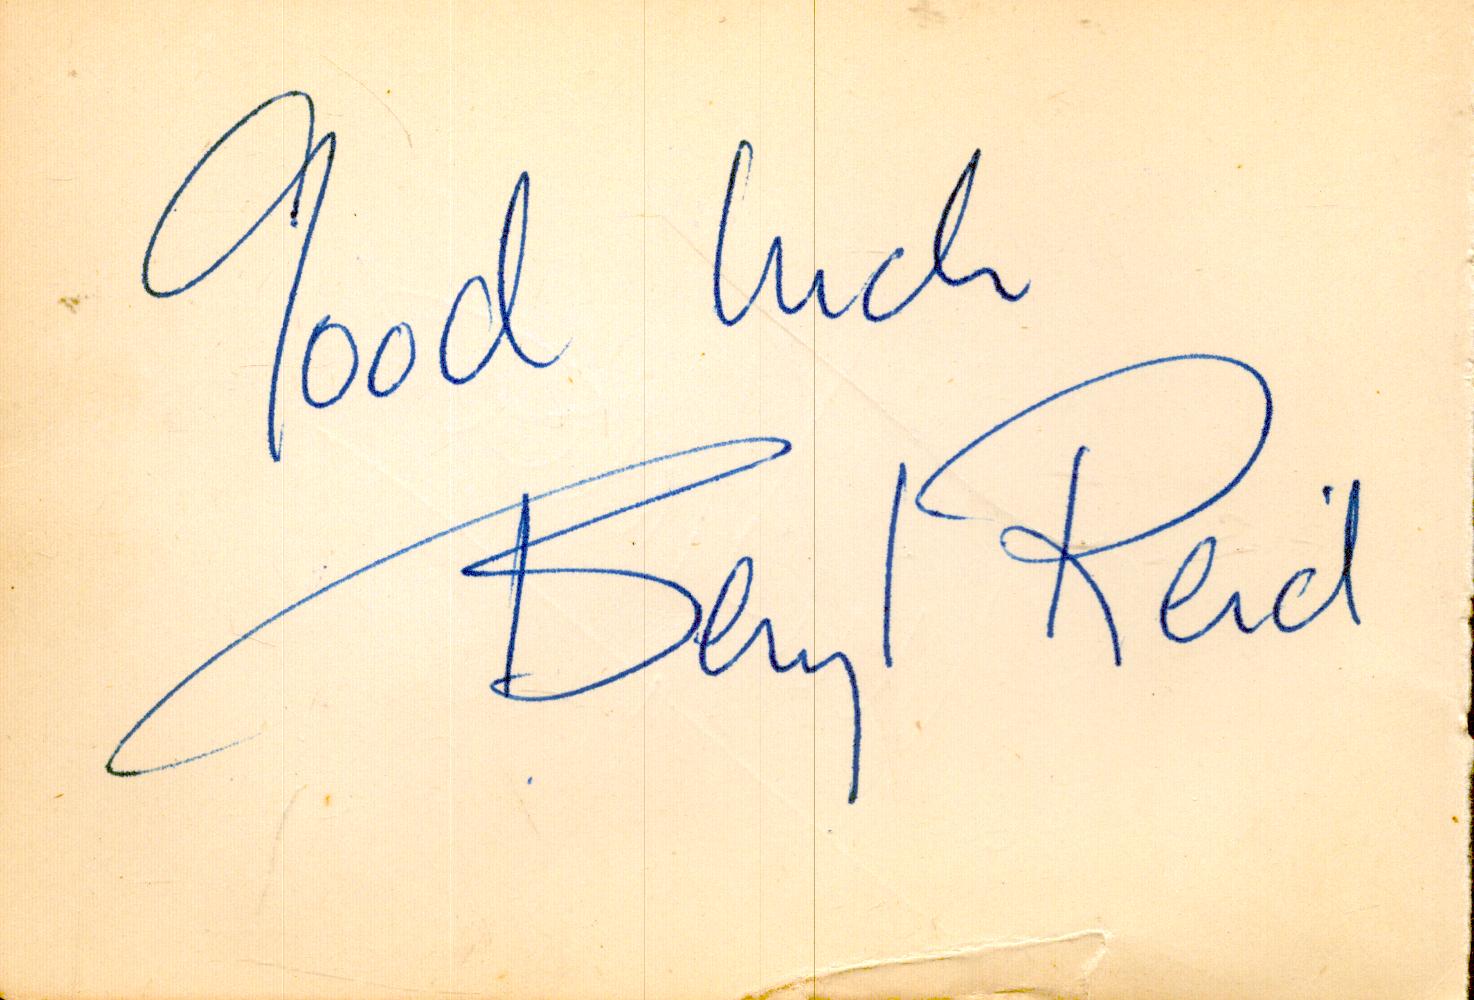 Good luck
Beryl Reid